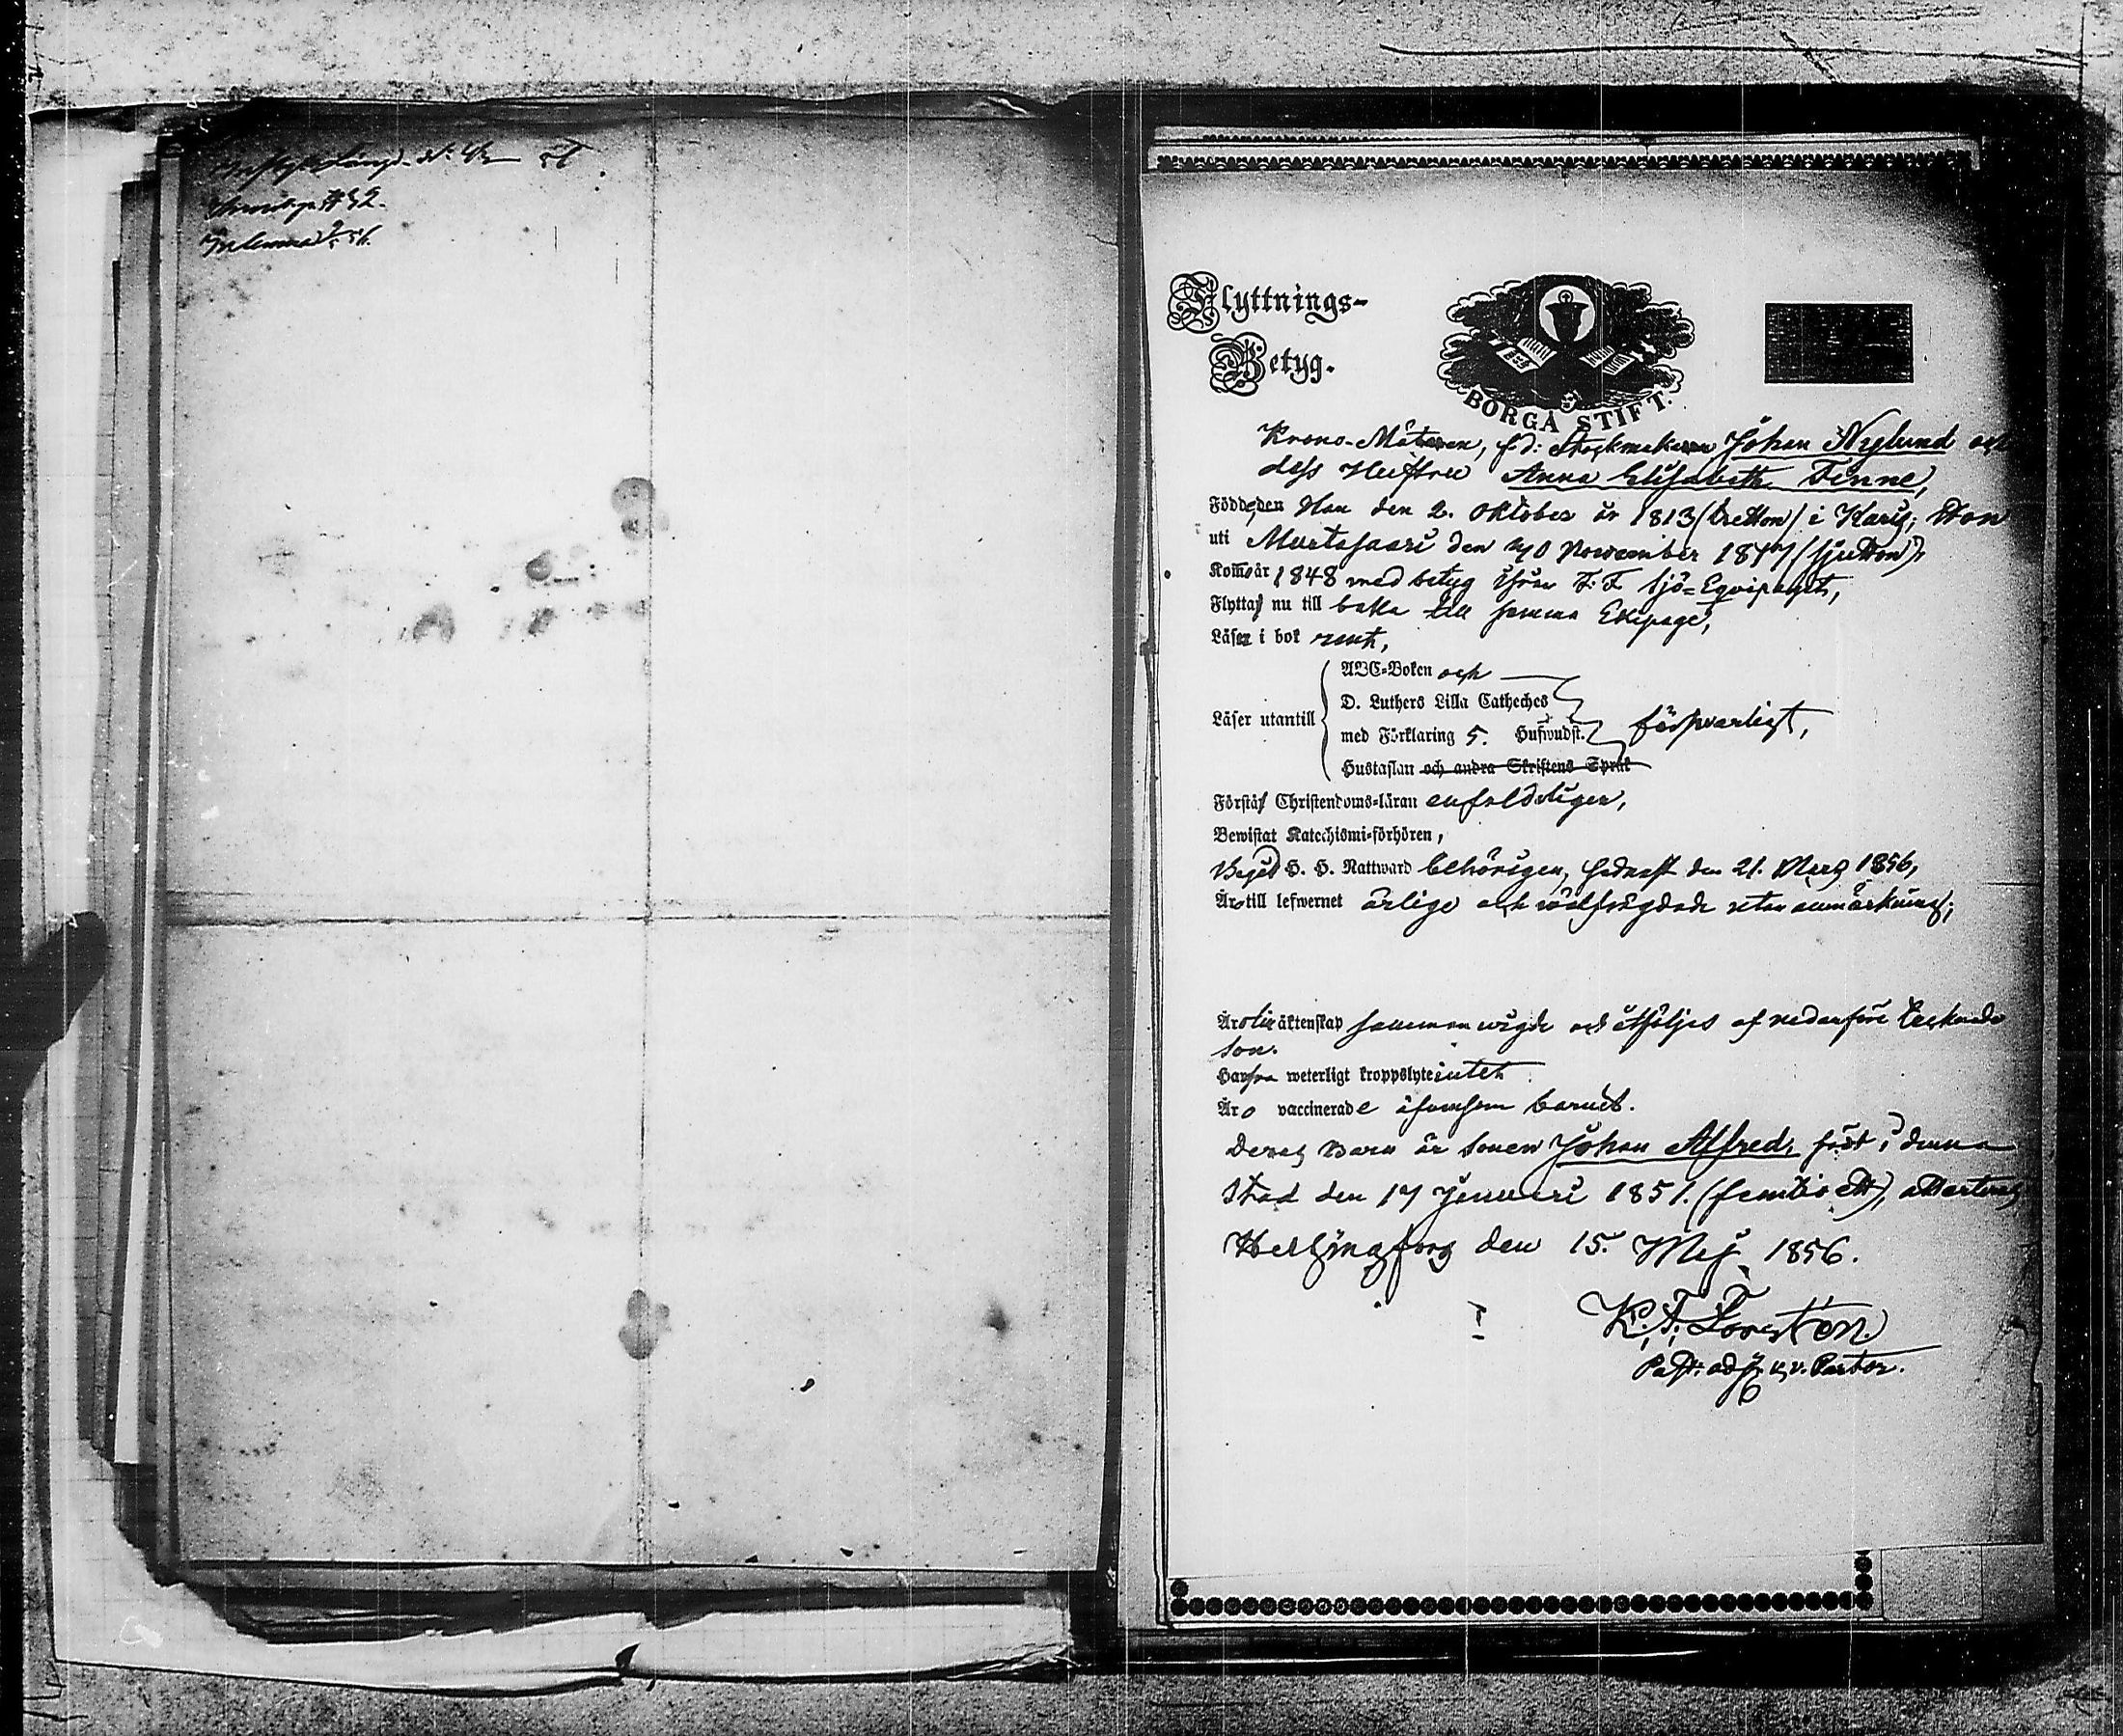 Flyttnings-
Betyg.
BORGÅ STIFT.
Krono-Mätaren, f.d: Stockmakaren Johan Nylund och
dess Hustru Anna Elisabeth Finne,
Födde, den Han den 2. Oktober år 1813 (tretton) i Karis; Hon
uti den November 1817 (sjutton);
Kom år 1848 med betyg ifrån F.F. Sjö-Eqvipaget,
Flytta nu till baka till samma Ekipage,
Läser i bok rent,
ABC-Boken och
D. Luthers Lilla Catheches
Läser utantill
med Förklaring 5. Hufwudst. försvarligt,
Hustaflan och andra Skriftens Språk
Förstå Christendoms-läran enfaldeligen,
Bewistat Katechismi-förhören,
Begått H. H. Nattward behörigen, sednast den 21. Mars 1856,
Äro till lefwernet ärlige och wälfrägdade utan anmärkning;
Äro till äktenskap sammanwigde och åtföljes af nedanföre tecknade
son.
Hafva weterligt kroppslyte intet
Äro vaccinerade äfvensom barnet.
Deras Barn är sonen Johan Alfred, född i denna
Stad den 17 Januari 1851. (femtio ett), attesteras
Helsingfors den 15. Maj 1856.
K. F. Forstén.
Past: adj. v. Pastor.